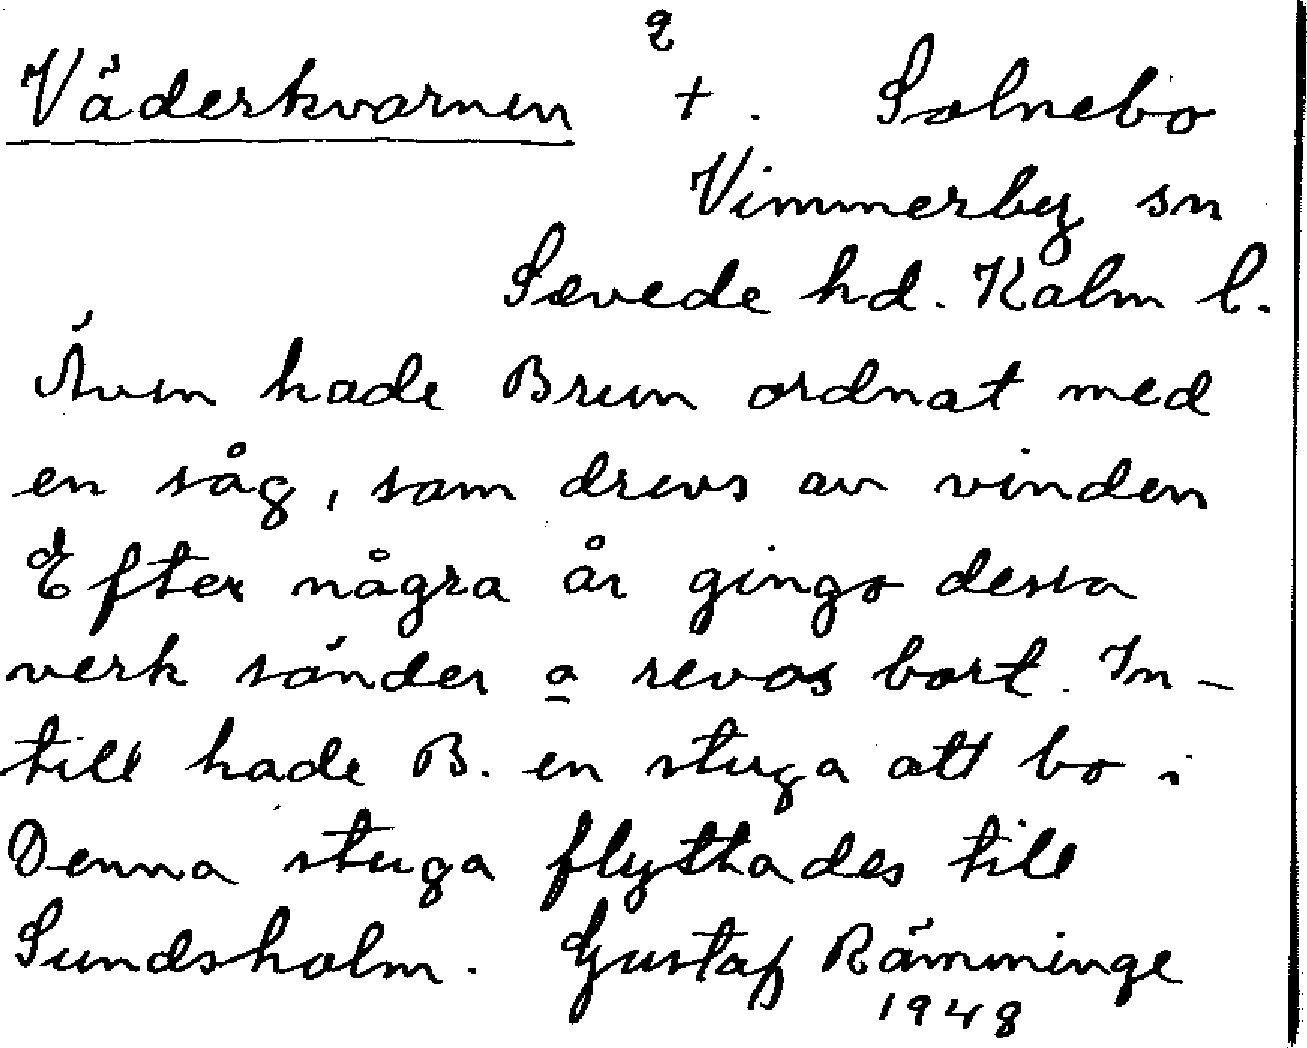 2
Väderkvarnen + . Solnebo
Vimmerby sn
Sevede hd. Kalm l.
Även hade Brun ordnat med
en såg, som drevs av vinden
Efter några år gingo dessa
verk sönder o revos bort. In-
till hade B. en stuga att bo i
Denna stuga flyttades till
Sundsholm. Gustaf Rämminge
1948